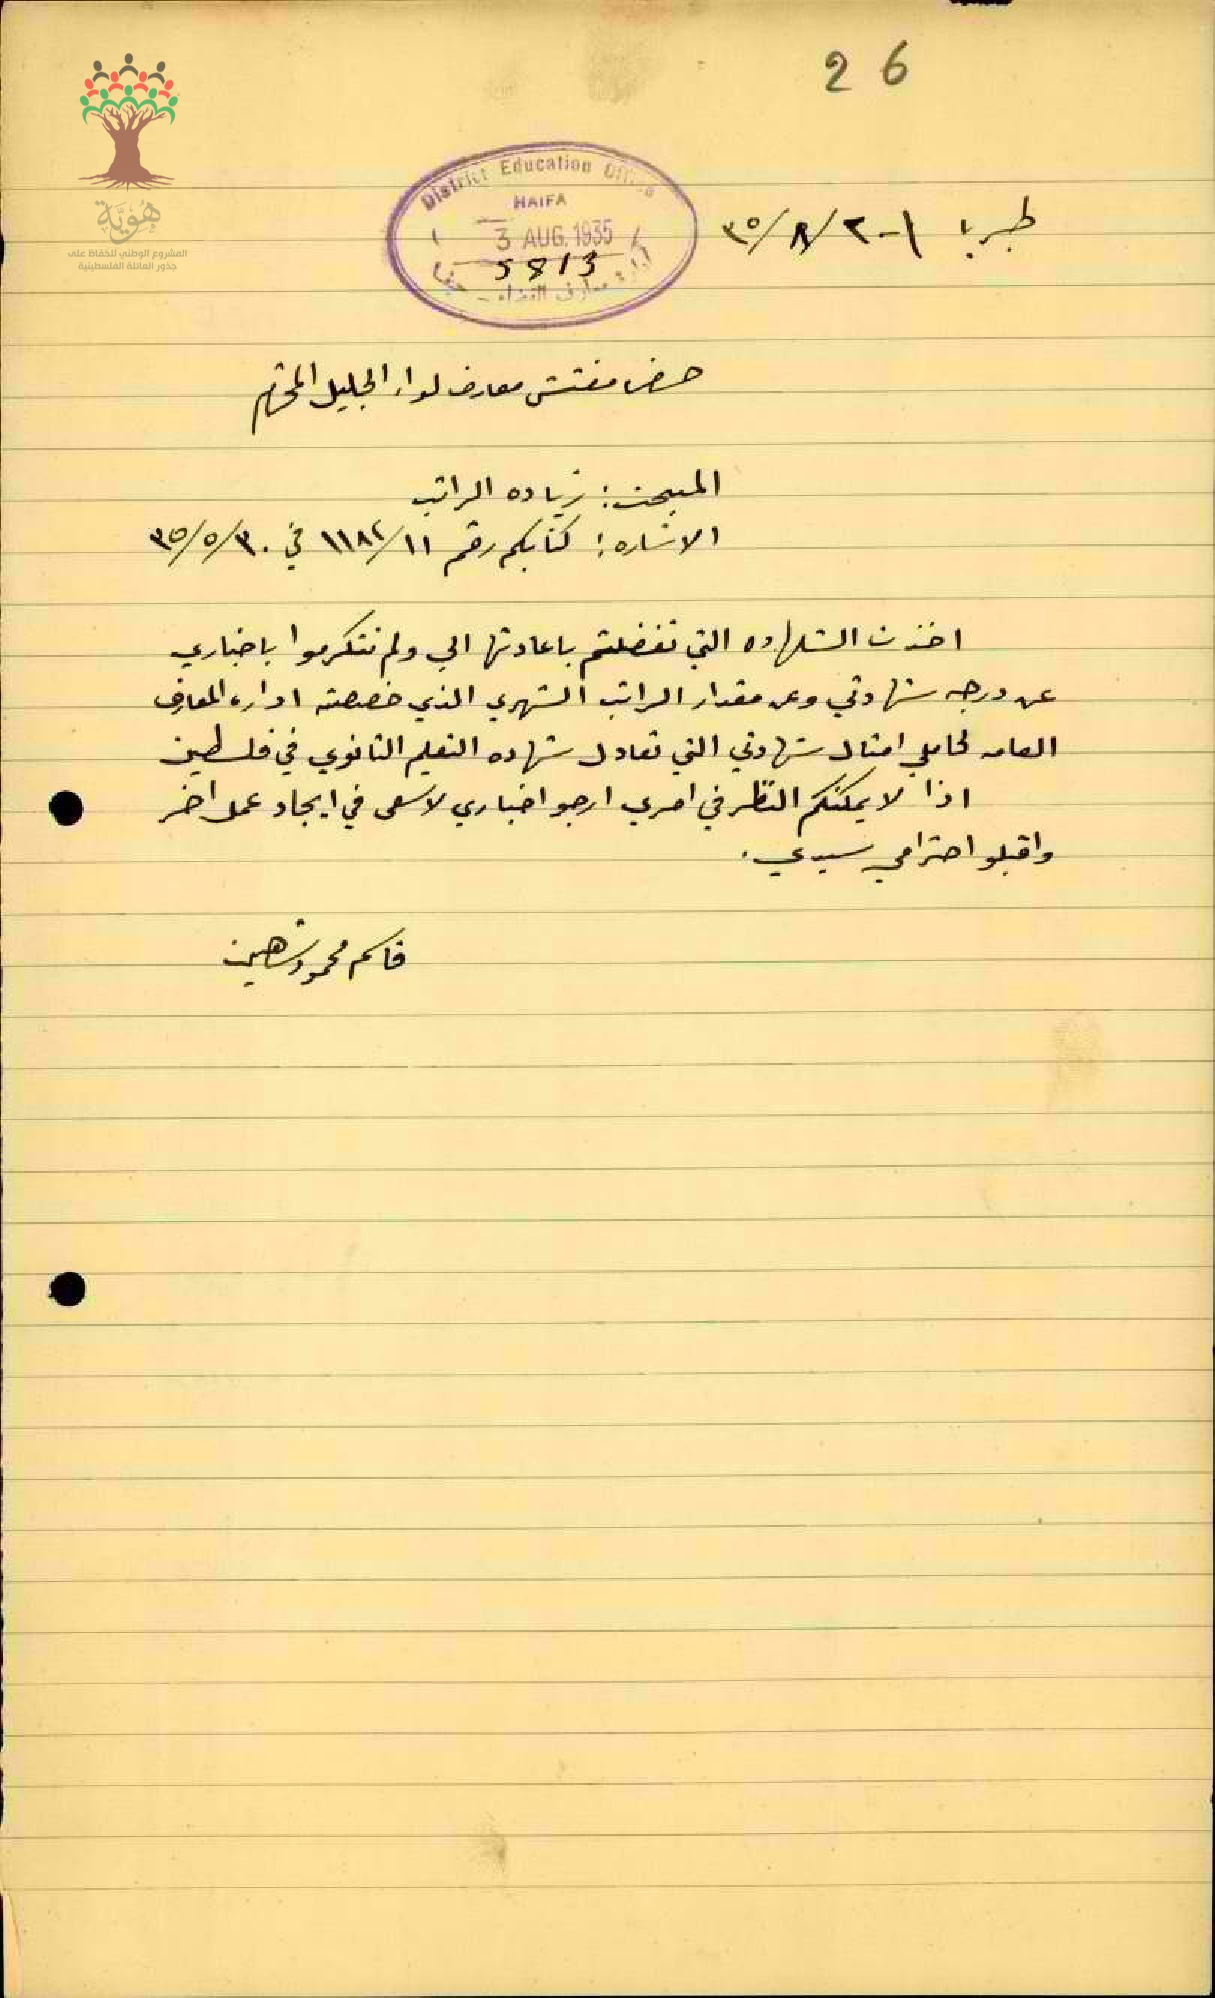 26
هُويَّة
المشروع الوطني للحفاظ على
جذور العائلة الفلسطينية
District Education Office
HAIFA
3 AUG. 1935
5813
ادارة معارف القضاء - حيفا
طبريا ٢-٨/٣٥
حضرة مفتش معارف لواء الجليل المحترم
المبحث: زياده الراتب
الاشاره: كتابكم رقم ١١٨٢/١١ في ٣٥/٥/٣٠
اخذت الشهاده التي تفضلتم باعادتها الي ولم تتكرموا باخباري
عن درجه شهادتي وعن مقدار الراتب الشهري الذي خصصته اداره المعارف
العامه لحاملي امثال شهادتي التي تعادل شهاده التعليم الثانوي في فلسطين
اذا لا يمكنكم النظر في امري ارجو اخباري لاسعى في ايجاد عمل اخر
واقبلو احترامي سيدي.
قاسم محمود شاهين